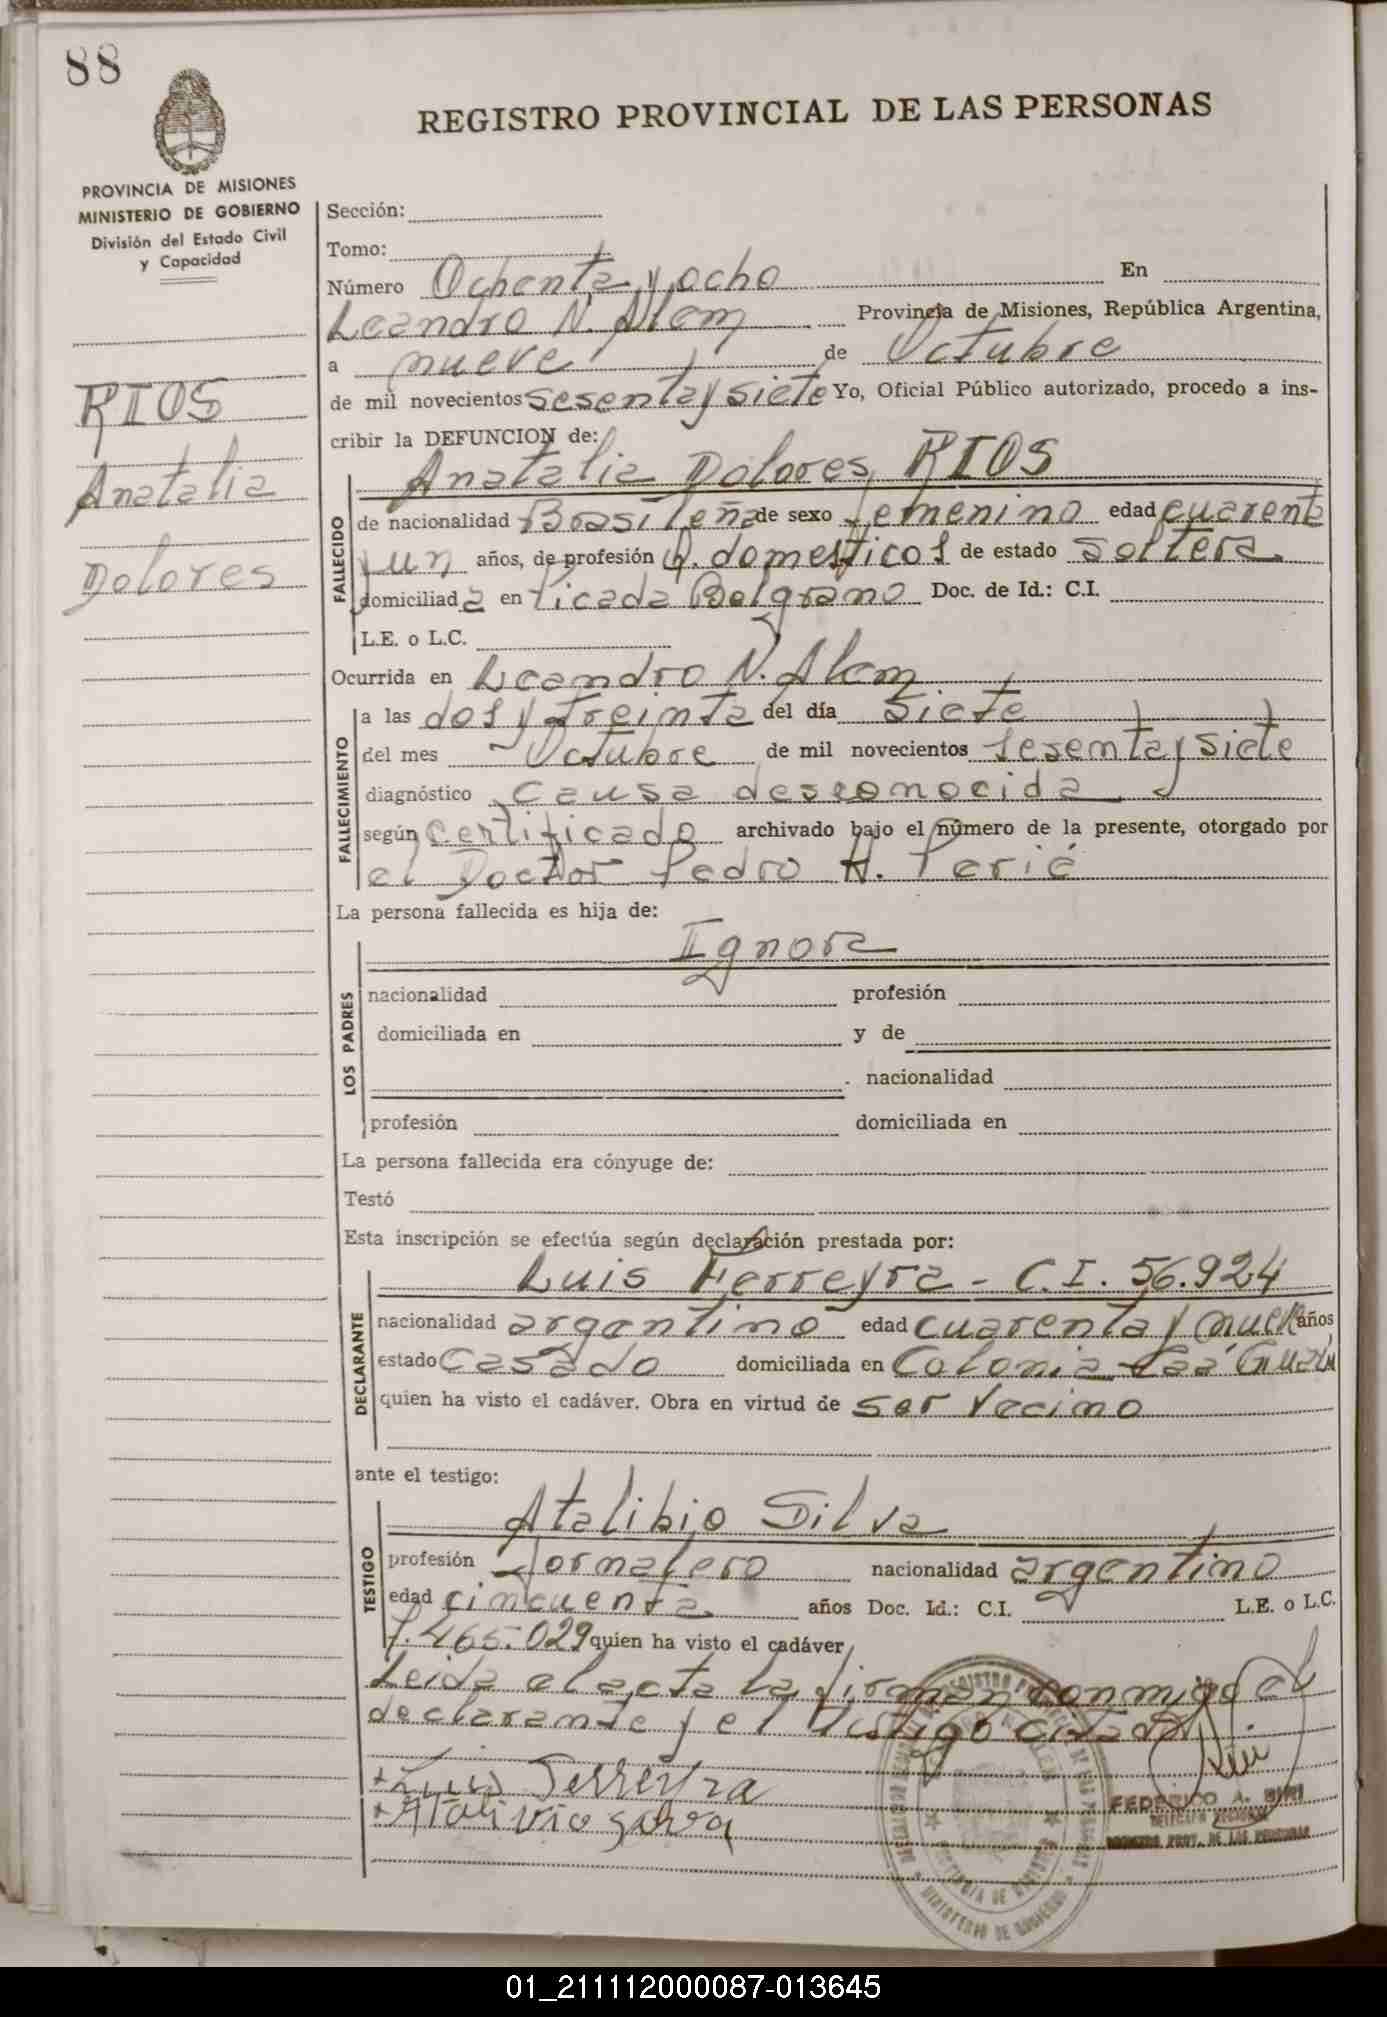 88
REGISTRO PROVINCIAL DE LAS PERSONAS
PROVINCIA DE MISIONES
MINISTERIO DE GOBIERNO
División del Estado Civil
y Capacidad
RIOS
Anatalia
Dolores
Sección:
Tomo:
Número Ochenta y ocho En
Leandro N. Alem Provincia de Misiones, República Argentina,
a nueve de Octubre
de mil novecientos sesenta y siete Yo, Oficial Público autorizado, procedo a ins-
cribir la DEFUNCION de:
Anatalia Dolores RIOS
FALLECIDO
de nacionalidad Brasileña de sexo femenino edad cuarent
y un años, de profesión Q. domesticos de estado soltera.
domiciliada en Picada Belgrano Doc. de Id.: C.I.
L.E. o L.C.
Ocurrida en Leandro N. Alem
FALLECIMIENTO
a las dos y treinta del día siete
del mes Octubre de mil novecientos sesenta y siete
diagnóstico causa desconocida
según certificado archivado bajo el número de la presente, otorgado por
el Doctor Pedro H. Perié
La persona fallecida es hija de:
LOS PADRES
Ignora
nacionalidad profesión
domiciliada en y de
nacionalidad
profesión domiciliada en
La persona fallecida era cónyuge de:
Testó
Esta inscripción se efectúa según declaración prestada por:
DECLARANTE
Luis Ferreyra - C.I. 56.924
nacionalidad argentino edad cuarenta y nueve años
estado casado domiciliada en Colonia Caá Guazú
quien ha visto el cadáver. Obra en virtud de ser vecino
ante el testigo:
TESTIGO
Atalibio Silva
profesión Jornalero nacionalidad argentino
edad cincuenta años Doc. Id.: C.I. L.E. o L.C.
7.465.029 quien ha visto el cadáver
Leida el acta la firman conmigo el
declarante y el testigo citado.
+ Luis Ferreyra
+ Atalivio Silva
FEDERICO A.
REGISTRO PROV. DE LAS PERSONAS
PROVINCIA DE MISIONES
MINISTERIO DE GOBIERNO
01_211112000087-013645